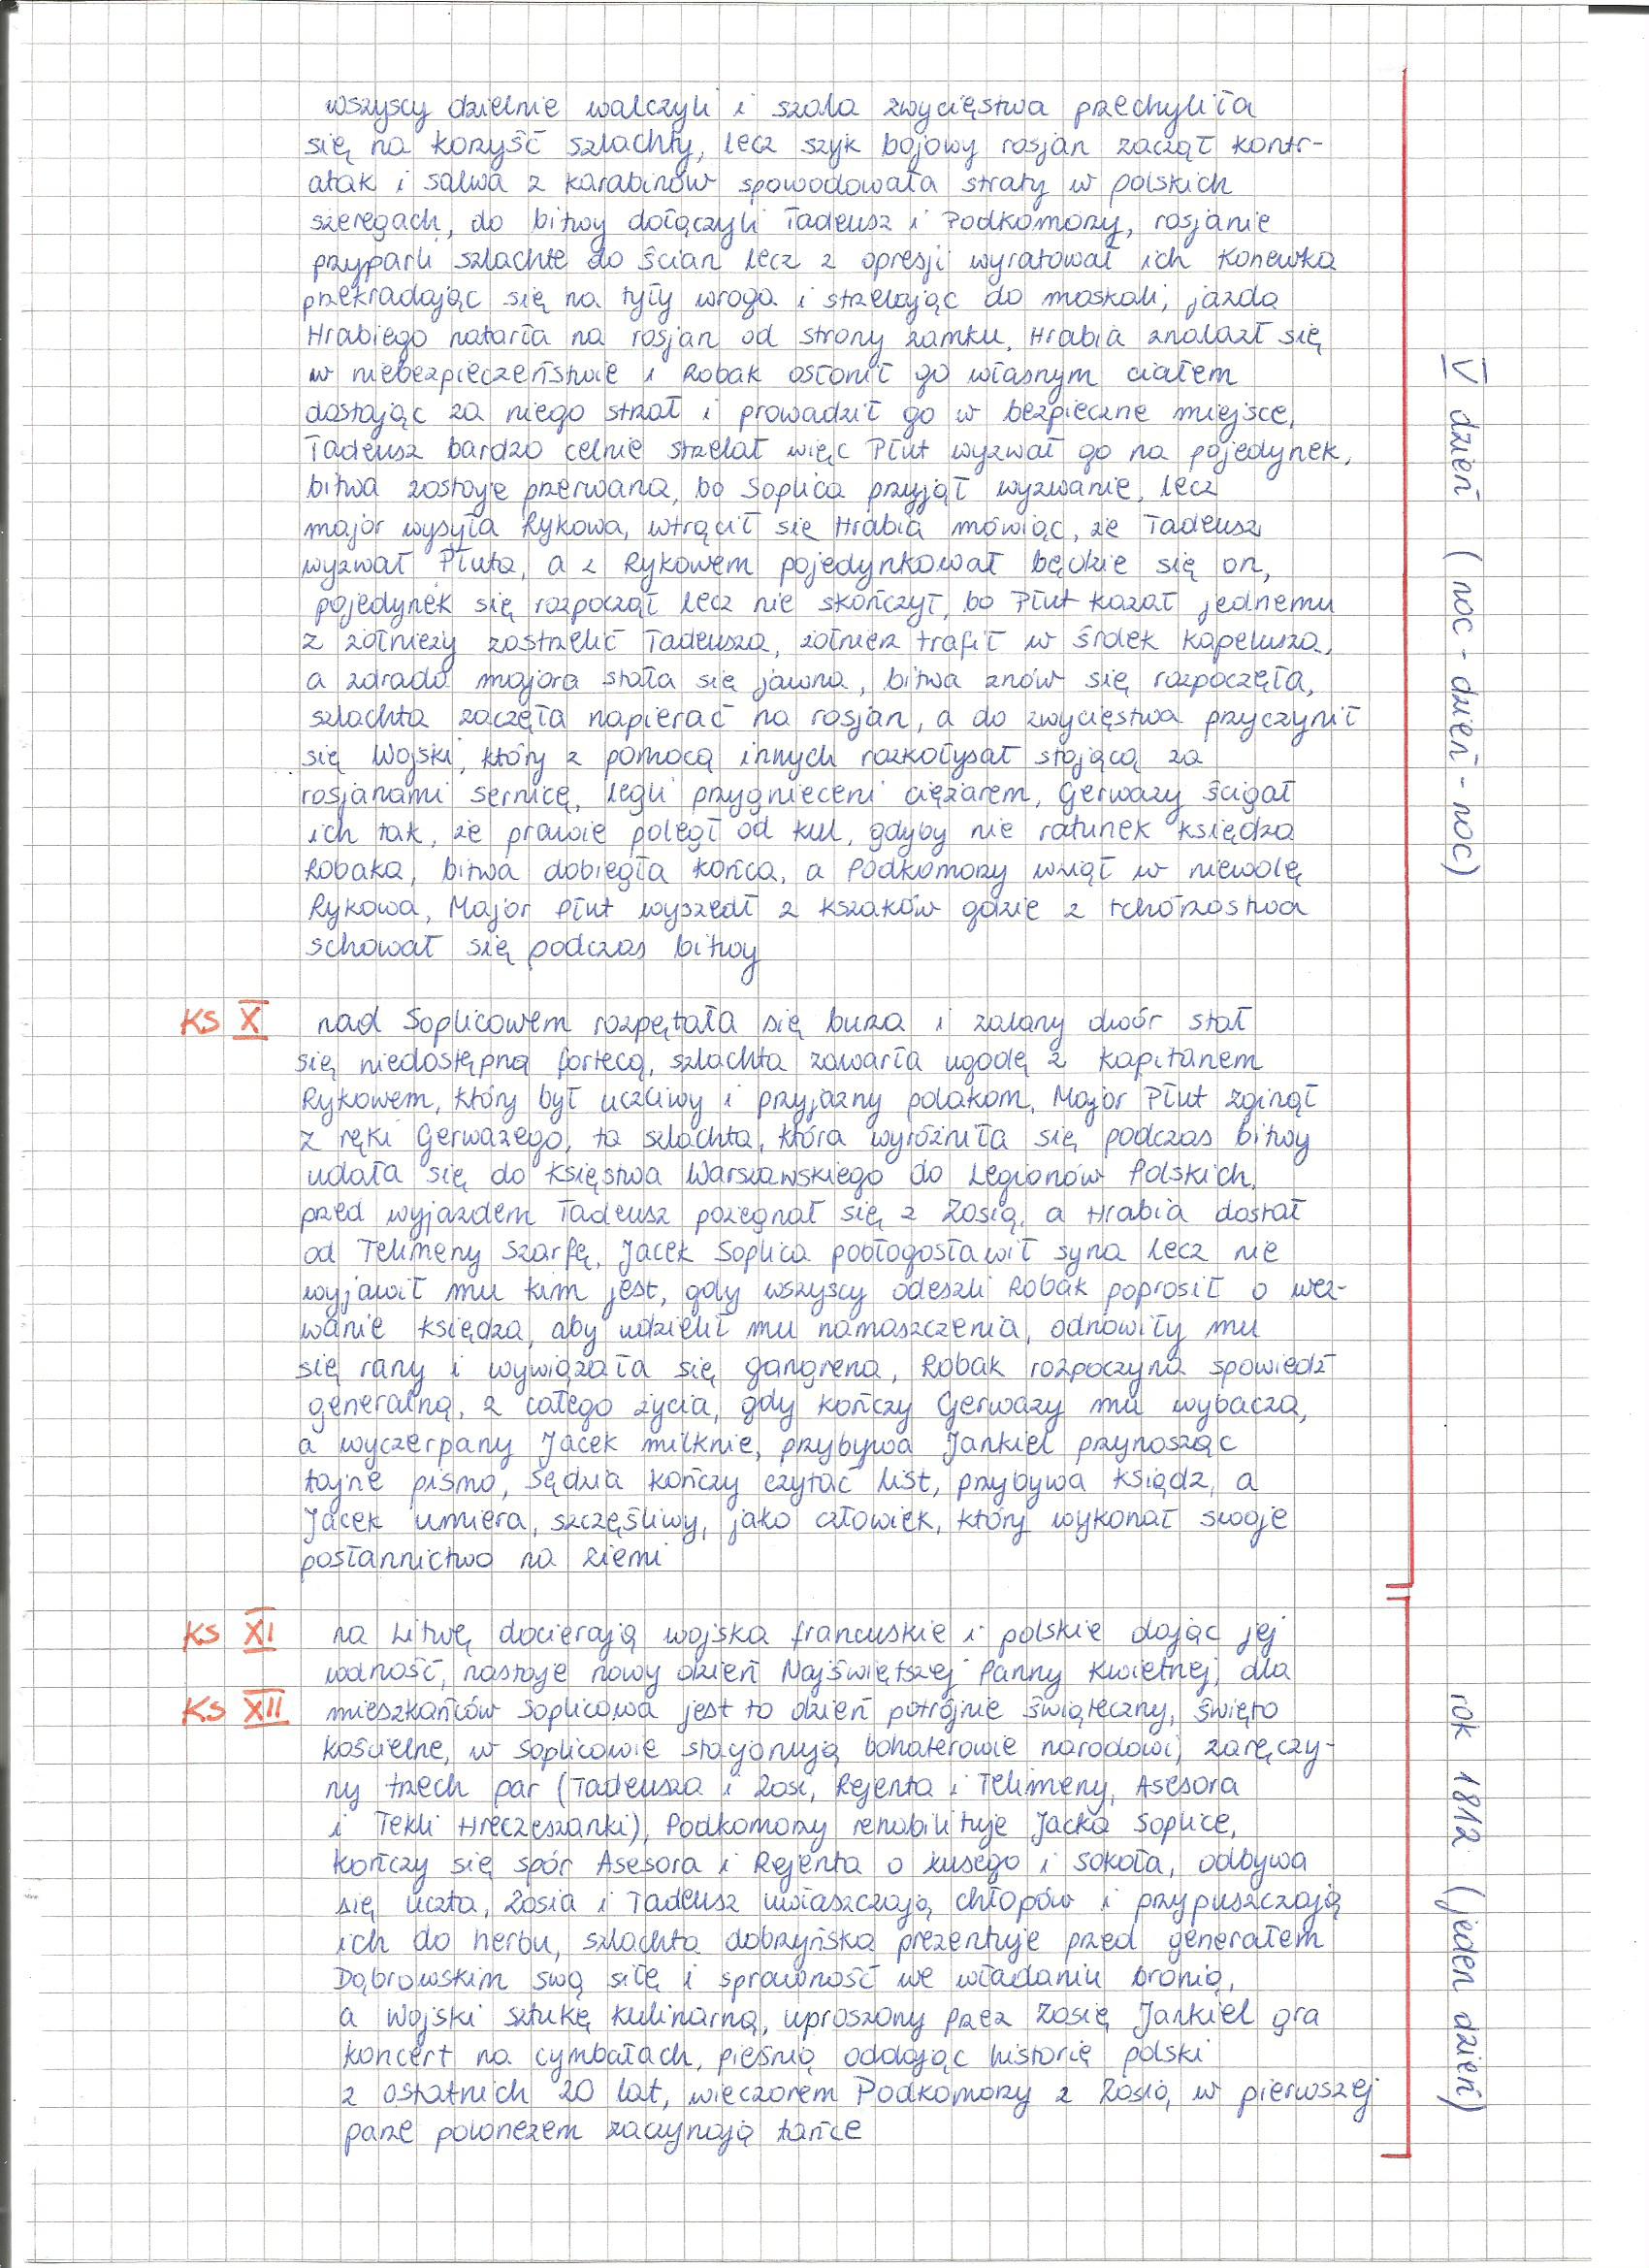 wszyscy dzielnie walczyli i szala zwycięstwa przechyliła
się na korzyść szlachty, lecz szyk bojowy rosjan zaczął kontr-
atak i salwa z karabinów spowodowała straty w polskich
szeregach, do bitwy dołączyli Tadeusz i Podkomorzy, rosjanie
przyparli szlachte do ścian lecz z opresji wyratował ich Konewka
przekradając się na tyły wroga i strzelając do moskali, jazda
Hrabiego natarła na rosjan od strony zamku, Hrabia znalazł się
w niebezpieczeństwie i Robak osłonił go własnym ciałem
dostając za niego strzał i prowadził go w bezpieczne miejsce,
Tadeusz bardzo celnie strzelał więc Płut wyzwał go na pojedynek,
bitwa zostaje przerwana, bo Soplica przyjął wyzwanie, lecz
major wysyła Rykowa, wtrącił się Hrabia mówiąc, że Tadeusz
wyzwał Płuta, a z Rykowem pojedynkował będzie się on,
pojedynek się rozpoczął lecz nie skończył, bo Płut kazał jednemu
z żołnieży zastrzelić Tadeusza, żołnierz trafił w śrdek kapelusza,
a zdrada majora stała się jawna, bitwa znów się rozpoczęła,
szlachta zaczęła napierać na rosjan, a do zwycięstwa przyczynił
się Wojski, który z pomocą innych rozkołysał stojącą za
rosjanami sernicę, legli przygnieceni ciężarem, Gerwazy ścigał
ich tak, że prawie poległ od kul, gdyby nie ratunek księdza
Robaka, bitwa dobiegła końca, a Podkomorzy wziął w niewolę
Rykowa, Major Płut wyszedł z kszaków gdzie z tchórzostwa
schował się podczas bitwy
KS X nad Soplicowem rozpętała się burza i zalany dwór stał
się niedostępną fortecą, szlachta zawarła ugodę z kapitanem
Rykowem, który był uczciwy i przyjazny polakom, Major Płut zginął
z ręki Gerwazego, ta szlachta, która wyróżniła się podczas bitwy
udała się do Księstwa Warszawskiego do Legionów Polskich,
przed wyjazdem Tadeusz pożegnał się z Zosią, a Hrabia dostał
od Telimeny szarfę, Jacek Soplica pobłogosławił syna lecz nie
wyjawił mu kim jest, gdy wszyscy odeszli Robak poprosił o wez-
wanie księdza, aby udzielił mu namaszczenia, odnowiły mu
się rany i wywiązała się gangrena, Robak rozpoczyna spowiedź
generalną, z całego życia, gdy kończy Gerwazy mu wybacza,
a wyczerpany Jacek milknie, przybywa Jankiel przynosząc
tajne pismo, Sędzia kończy czytać list, przybywa ksiądz, a
Jacek umiera, szczęśliwy, jako człowiek, który wykonał swoje
posłannictwo na ziemi
V dzień (noc - dzień - noc)
KS XI na Litwę docierają wojska francuskie i polskie dając jej
wolność, nastaje nowy dzień Najświętszej Panny Kwietnej, dla
KS XII mieszkańców Soplicowa jest to dzień potrójnie świąteczny, święto
kościelne, w Soplicowie stacjonują bohaterowie narodowi, zaręczy-
ny trzech par (Tadeusza i Zosi, Rejenta i Telimeny, Asesora
i Tekli Hreczeszanki), Podkomorzy rehabilituje Jacka Soplice,
kończy się spór Asesora i Rejenta o kusego i sokoła, odbywa
się uczta, Zosia i Tadeusz uwłaszczają chłopów i przypuszczają
ich do herbu, szlachta dobrzyńska prezentuje przed generałem
Dąbrowskim swą siłę i sprawność we władaniu bronią,
a Wojski sztukę kulinarną, uproszony przez Zosię Jankiel gra
koncert na cymbałach, pieśnią oddając historię polski
z ostatnich 20 lat, wieczorem Podkomorzy z Zosią w pierwszej
parze polonezem zaczynają tańce
rok 1812 (jeden dzień)